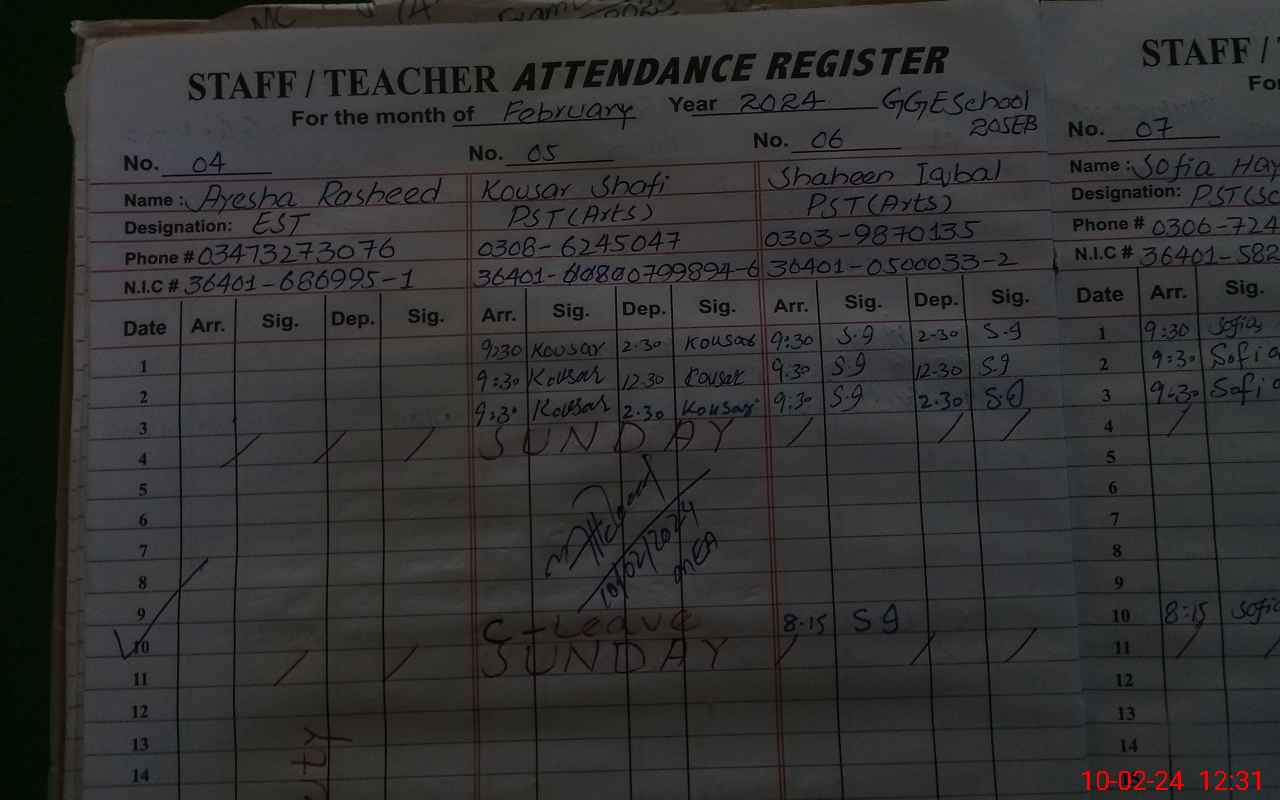 STAFF / TEACHER ATTENDANCE REGISTER
For the month of February Year 2024 GGESchool
205EB
No. 04 No. 05 No. 06
Name : Ayesha Rasheed Kousar Shafi Shaheen Iqbal
Designation: EST PST(Arts) PST(Arts)
Phone # 03473273076 0308-6245047 0303-9870135
N.I.C # 36401-686995-1 0799894-6 36401-0500033-2
Date Arr. Sig. Dep. Sig. Arr. Sig. Dep. Sig. Arr. Sig. Dep. Sig.
1 9:30 Kousar 2.30 Kousar 9:30 S.9 2-30 S.9
2 9:30 Kousar 12.30 Kousar 9.30 S.9 12.30 S.9
3 9:3 Kousar 2.30 Kousar 9:30 S.9 2.30 S.9
4 SUNDAY
5
6
7
8
9
10/02/2024
10 C-Leave 8.15 S 9
11 SUNDAY
12
13
14
uty
STAFF /
Fo
No. 07
Name : Sofia Hay
Designation: PST(Sc
Phone # 0306-724
N.I.C # 36401-582
Date Arr. Sig.
1 9:30 Sofia
2 9:30 Sofia
3 9:30 Sofia
4
5
6
7
8
9
10 8:15 Sofia
11
12
13
14
10-02-24 12:31